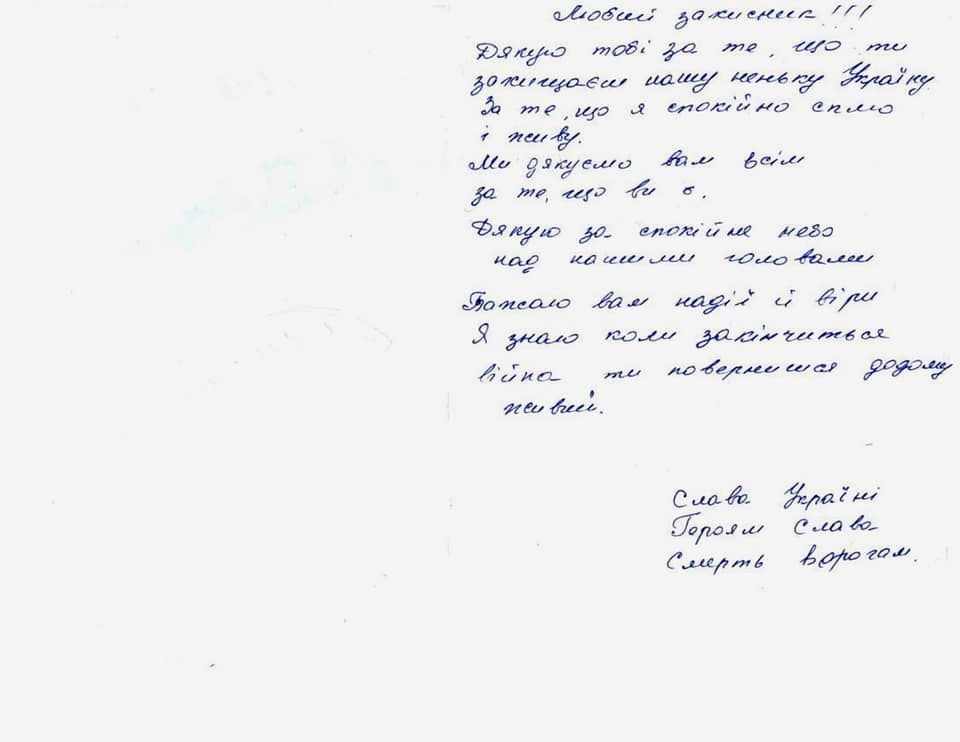 Любий захисник!!!
Дякую тобі за те, що ти
захищаєш нашу неньку Україну.
За те, що я спокійно сплю
і живу.
Ми дякуємо вам всім
за те, що ви є.
Дякую за спокійне небо
над нашими головами
Бажаю вам надії й віри
Я знаю коли закінчиться
війна ти повернишся додому
живий.
Слава Україні
Героям Слава
Смерть ворогам.